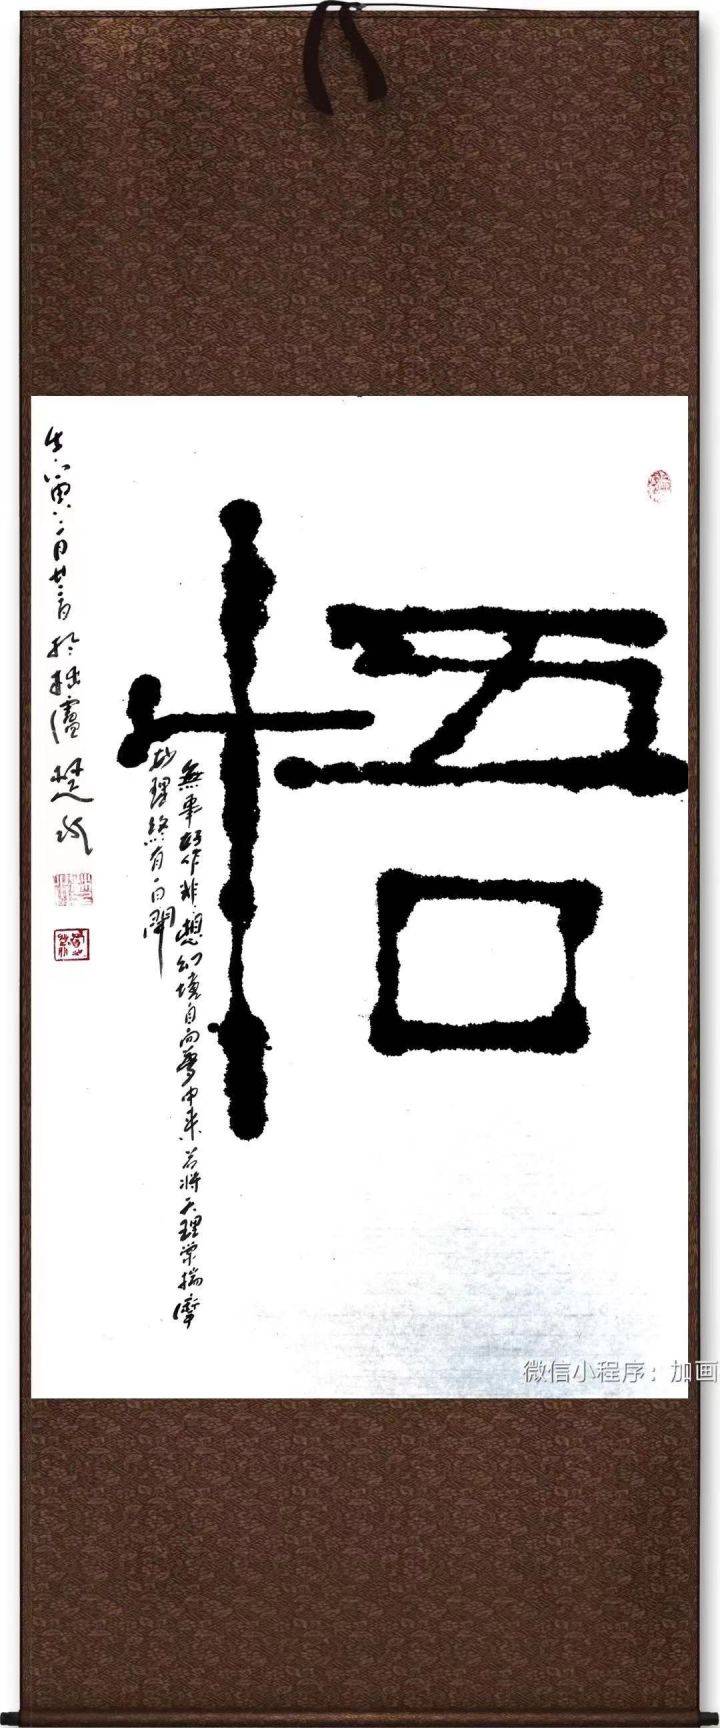 悟
無事好作非想幻境自向夢中来若將天理常揣摩
妙理終有一日開
壬寅六月廿二日於拙廬
微信小程序：加画